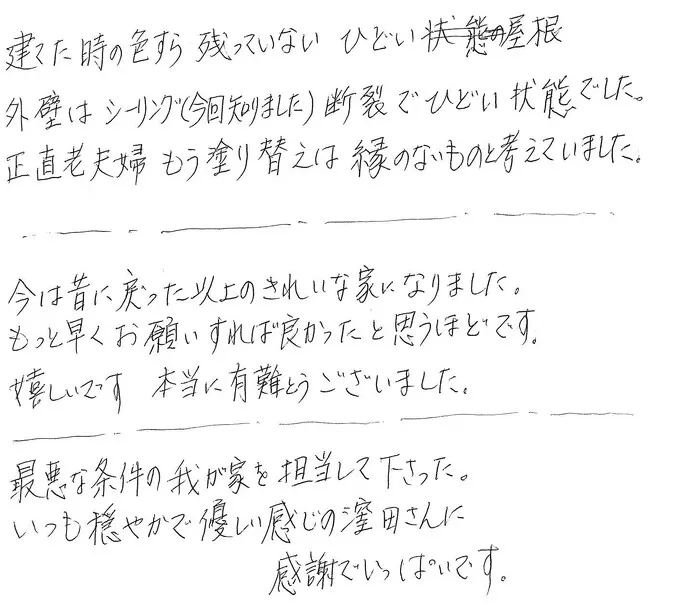 建てた時の色すら 残っていない ひどい状態の屋根
外壁は シーリング(今回知りました) 断裂で ひどい 状態でした。
正直老夫婦 もう塗り替えは 縁のないものと考えていました。
今は昔に戻った以上のきれいな家になりました。
もっと早く お願いすれば良かったと思うほどです。
嬉しいです 本当に有難とうございました。
最悪な条件の我が家を担当して下さった。
いつも穏やかで優しい感じの窪田さんに
感謝でいっぱいです。